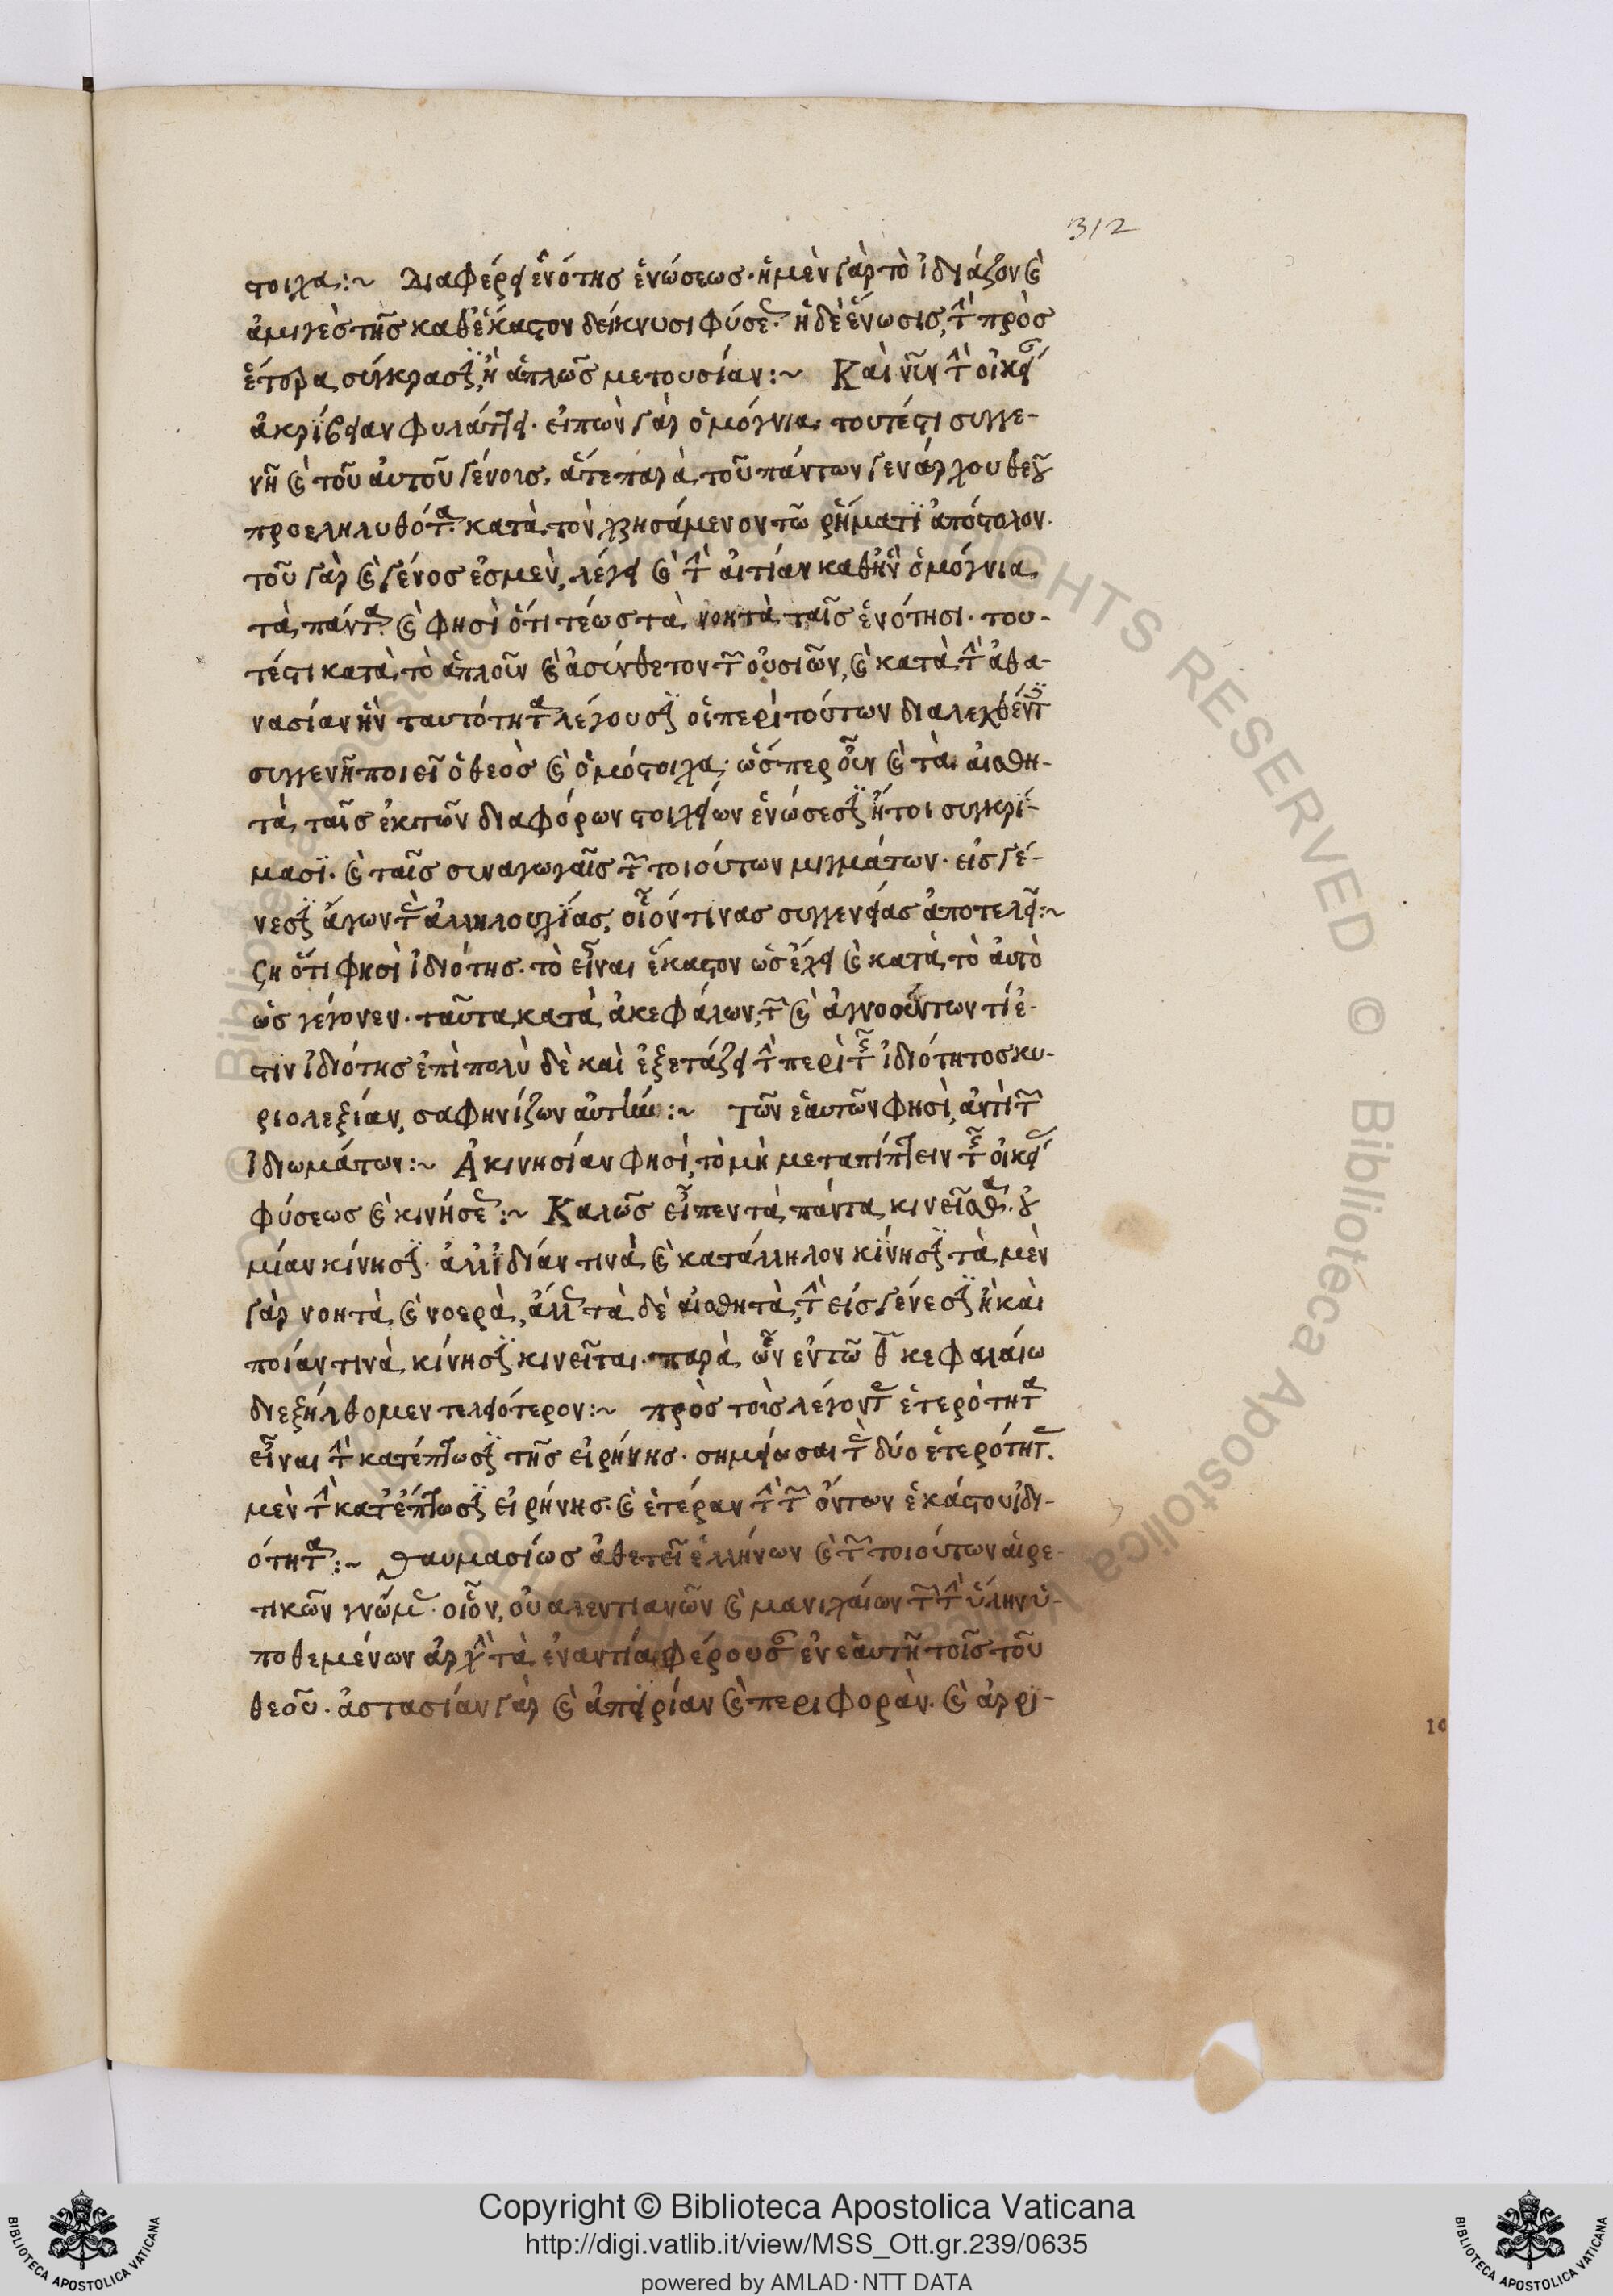 312
στοιχα:~ Διαφέρει ἑνότης ἑνώσεως· ἡ μὲν γὰρ τὸ ἰδιάζον καὶ
ἀμιγὲς τῆς καθ' ἕκαστον δείκνυσι φύσε· ἡ δὲ ἕνωσις, τὴν πρὸς
ἕτερα σύγκρασιν, ἢ ἁπλῶς μετουσίαν:~ Καὶ νῦν τὴν οἰκεί
ἀκρίβειαν φυλάττει· εἰπὼν γὰρ ὁμόγνια· τουτέστι συγγε-
νῆ καὶ τοῦ αὐτοῦ γένους, ἅτε παρὰ τοῦ πάντων γενάρχου θεοῦ
προεληλυθότα· κατὰ τὸν χρησάμενον τῶ ρήματι ἀπόστολον.
τοῦ γὰρ καὶ γένος ἐσμὲν, λέγει καὶ τὴν αἰτίαν καθ' ἣν ὁμόγνια
τὰ πάντα· καὶ φησὶ ὅτι τέως τὰ νοητὰ ταῖς ἑνότησι· του-
τέστι κατὰ τὸ ἁπλοῦν καὶ ἀσύνθετον τῶν οὐσιῶν, καὶ κατὰ τὴν ἀθα-
νασίαν ἣν ταυτότητα λέγουσιν οἱ περὶ τούτων διαλεχθέντ
συγγενῆ ποιεῖ ὁ θεὸς καὶ ὁμόστοιχα· ὥσπερ οὖν καὶ τὰ αἰσθη-
τὰ ταῖς ἐκ τῶν διαφόρων στοιχείων ἑνώσεσιν ἤτοι συγκρί-
μασι· καὶ ταῖς συναγωγαῖς τῶν τοιούτων μιγμάτων· εἰς γέ-
νεσιν ἄγων τὰς ἀλληλουχίας, οἷόν τινας συγγενείας ἀποτελεῖ:~
ση ὅτι φησὶ ἰδιότης· τὸ εἶναι ἕκαστον ὡς ἔχει καὶ κατὰ τὸ αὐτὸ
ὡς γέγονεν· ταῦτα κατὰ ἀκεφάλων, τῶν καὶ ἀγνοούντων τί ἐ-
στιν ἰδιότης ἐπὶ πολὺ δὲ καὶ ἐξετάζει τὴν περὶ τῆς ἰδιότητος κυ-
ριολεξίαν, σαφηνίζων αὐτήν:~ Τῶν ἑαυτῶν φησὶ, ἀντὶ τῶν
ἰδιωμάτων:~ Ἀκινησίαν φησὶ, τὸ μὴ μεταπίπτειν τῆς οἰκεί
φύσεως καὶ κινήσε:~ Καλῶς εἶπεν τὰ πάντα κινεῖσθαι· οὐ
μίαν κίνησιν· ἀλλ' ἰδίαν τινὰ καὶ κατάλληλον κίνησιν τὰ μὲν
γὰρ νοητὰ καὶ νοερὰ, ἄλλ τὰ δὲ αἰσθητὰ, τὴν εἰς γένεσιν ἢ καὶ
ποίαν τινὰ κίνησιν κινεῖται· παρὰ ὧν ἐν τῶ θ κεφαλαίω
διεξήλθομεν τελειότερον:~ πρὸς τοὺς λέγοντας ἑτερότητα
εἶναι τὴν κατέπτωσιν τῆς εἰρήνης· σημείωσαι τὰς δύο ἑτερότητ.
μὲν τὴν κατ' ἔπτωσιν εἰρήνης· καὶ ἑτέραν τὴν τῶν ὄντων ἑκάστου ἰδι-
ότητα:~ Θαυμασίως ἀθετεῖ ἑλλήνων καὶ τῶν τοιούτων αἱρε-
τικῶν γνώμ· οἷον, οὐαλεντιανῶν καὶ μανιχαίων τῶν τὴν ὕλην ὑ-
ποθεμένων ἀρχὴν τὰ ἐναντία φέρουσαν ἐν ἑαυτῆ τοῖς τοῦ
θεοῦ· ἀστασίαν γὰρ καὶ ἀπειρίαν καὶ περιφορὰν· καὶ ἀρρι-
Copyright © Biblioteca Apostolica Vaticana
http://digi.vatlib.it/view/MSS_Ott.gr.239/0635
powered by AMLAD·NTT DATA